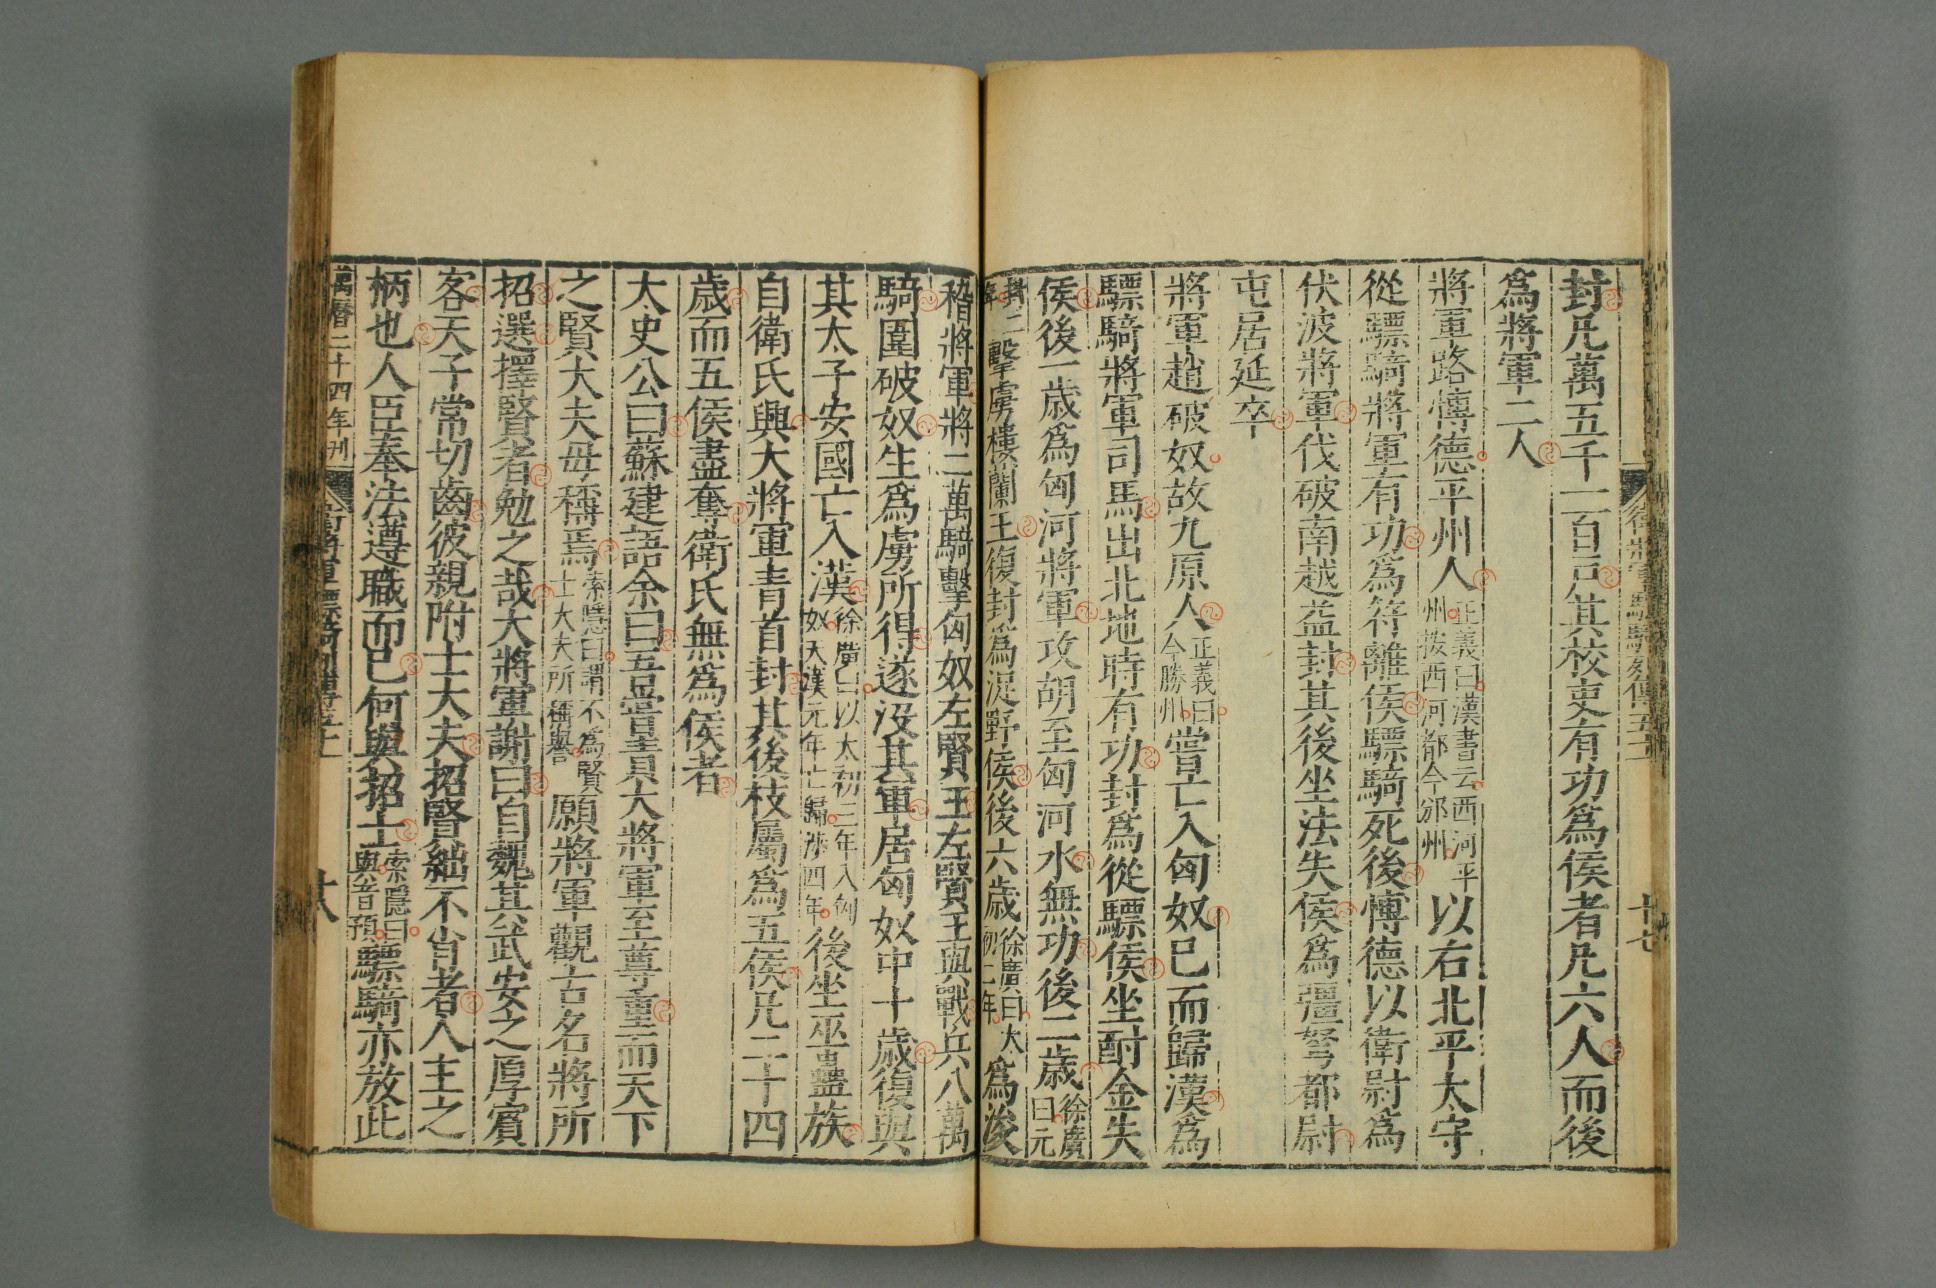 封凡萬五千一百戶其校吏有功爲侯者凡六人而後
爲將軍二人
將軍路愽德平州人正義曰漢書云西河平州按西河郡今邠州以右北平太守
從驃騎將軍有功爲符離侯驃騎死後愽德以衛尉爲
伏波將軍伐破南越益封其後坐法失侯爲彊弩都尉
屯居延卒
將軍趙破奴故九原人正義曰今勝州嘗亡入匈奴已而歸漢爲
驃騎將軍司馬出北地時有功封爲從驃侯坐酎金失
侯後一歲爲匈河將軍攻胡至匈河水無功後二歲徐廣曰元
封三年擊虜樓蘭王復封爲浞野侯後六歲徐廣曰太初二年爲浚
稽將軍將二萬騎擊匈奴左賢王左賢王與戰兵八萬
騎圍破奴生爲虜所得遂沒其軍居匈奴中十歲復與
其太子安國亡入漢徐廣曰以太初二年入匈奴天漢元年亡歸涉四年後坐巫蠱族
自衛氏興大將軍青首封其後枝屬爲五侯凡二十四
歲而五侯盡奪衛氏無爲侯者
太史公曰蘇建語余曰吾嘗責大將軍至尊重而天下
之賢大夫毋稱焉索隱曰謂不為賢士大夫所稱譽願將軍觀古名將所
招選擇賢者勉之哉大將軍謝曰自魏其武安之厚賓
客天子常切齒彼親附士大夫招賢絀不肖者人主之
柄也人臣奉法遵職而已何與招士索隱曰與音預驃騎亦放此
萬曆二十四年刊